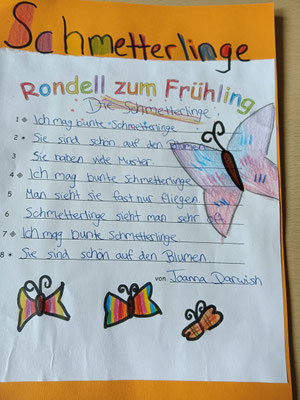 Schmetterlinge
Rondell zum Frühling
Die Schmetterlinge
1 Ich mag bunte Schmetterlinge
2 * Sie sind schön auf den Blumen
3 Sie haben viele Muster
4 Ich mag bunte Schmetterlinge
5 Man sieht sie fast nur fliegen
6 Schmetterlinge sieht man sehr oft
7 Ich mag bunte Schmetterlinge
8 * Sie sind schön auf den Blumen
von Joanna Darwish